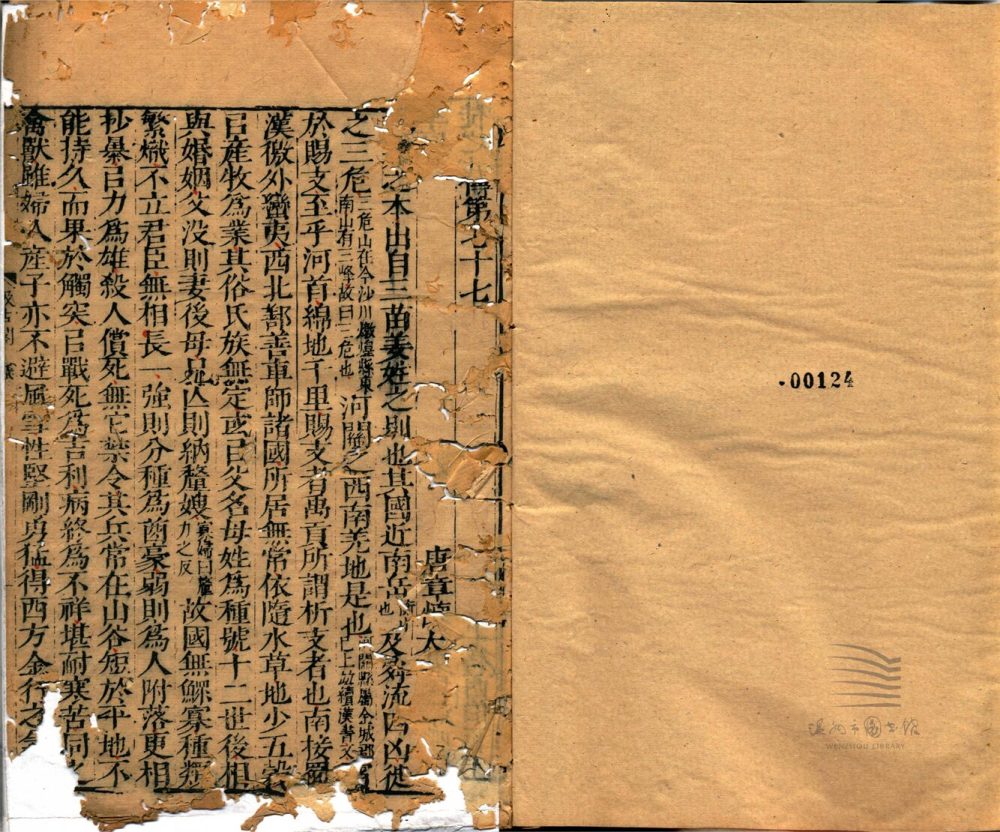 傳第七十七
唐章懷太
之本出自三苗姜姓之別也其國近南岳衡山也及舜流四凶徙
之三危三危山在今沙川燉煌縣東南山有三峰故曰三危也河關之西南羌地是也河關縣屬金城郡上並續漢書文
於賜支至乎河首綿地千里賜支者禹貢所謂析支者也南接蜀
漢徼外蠻夷西北鄯善車師諸國所居無常依隨水草地少五穀
㠯産牧爲業其俗氏族無定或㠯父名母姓爲種號十二世後相
與婚姻父没則妻後母兄亾則納釐嫂寡婦曰釐力之反故國無鰥寡種類
繁熾不立君臣無相長一強則分種爲酋豪弱則爲人附落更相
抄暴㠯力爲雄殺人償死無它禁令其兵常在山谷短於平地不
能持久而果於觸突㠯戰死爲吉利病終爲不祥堪耐寒苦同之
禽獸雖婦人産子亦不避風雪性堅剛勇猛得西方金行之氣
.00124
温州市图书馆
WENZHOU LIBRARY